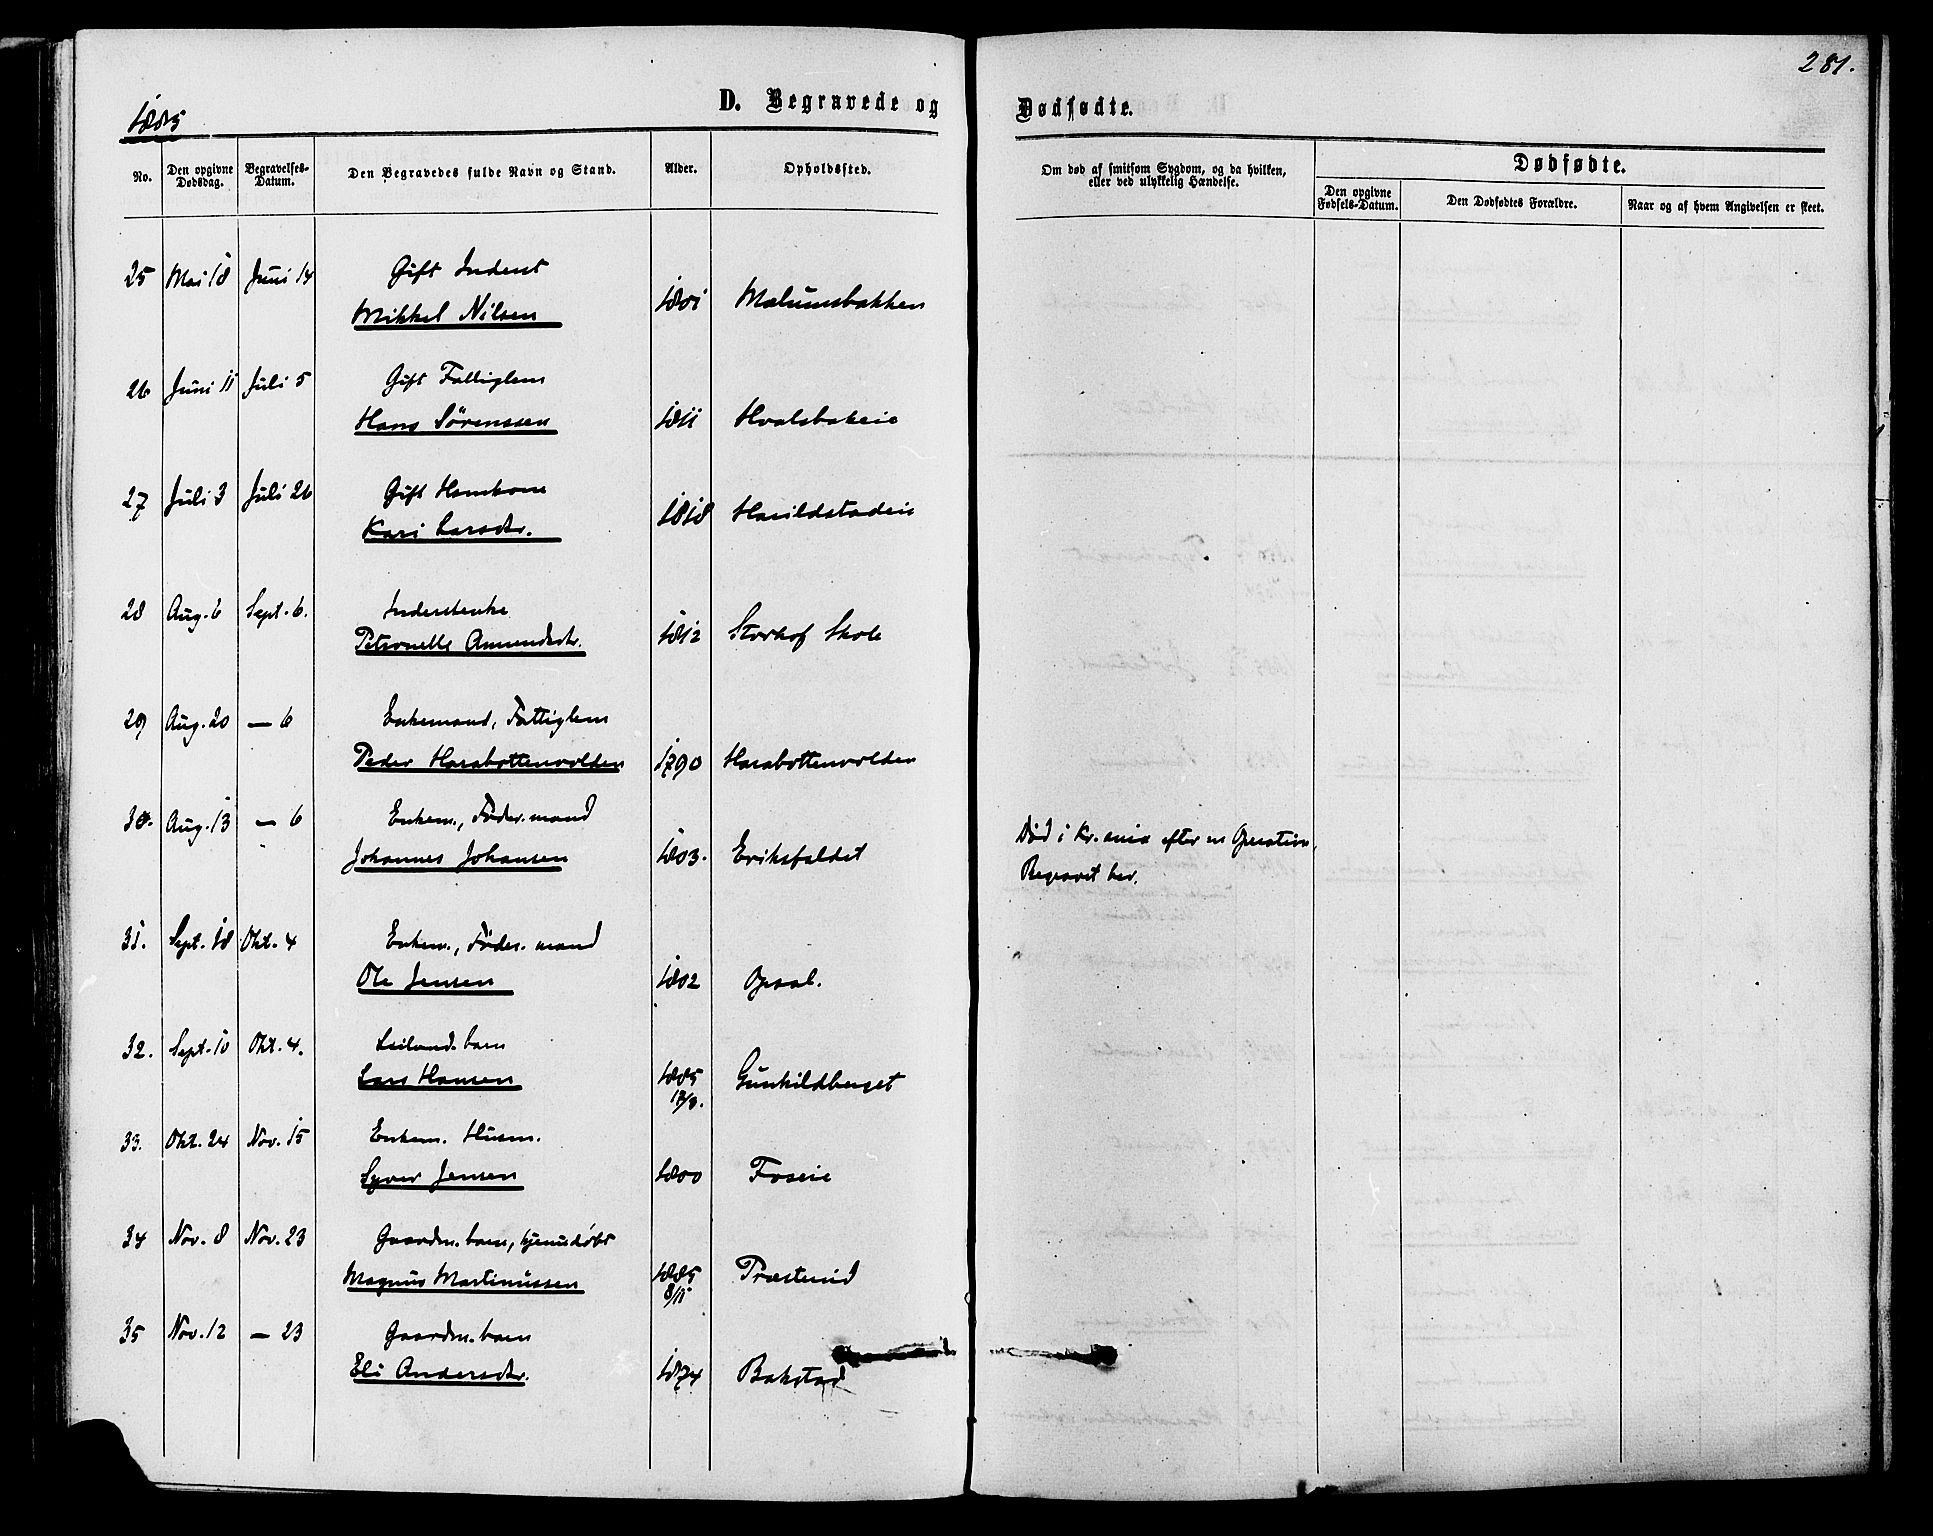 281.
1885
D. Begravede og Dødfødte.
No.
Den opgivne Dødsdag.
Begravelses-Datum.
Den Begravedes fulde Navn og Stand.
Alder.
Opholdssted.
Om død af smitsom Sygdom, og da hvilken, eller ved ulykkelig Hændelse.
Dødfødte.
Den opgivne Fødsels-Datum.
Den Dødfødtes Forældre.
Naar og af hvem Angivelsen er skeet.
25 Mai 18 Juni 14 Gift Inderst
Mikkel Nilsen 1801 Mælumsbakken
26 Juni 11 Juli 5 Gift Fattiglem
Hans Sørenssen 1811 Hvalsbakeie
27 Juli 3 Juli 26 Gift Huuskone
Kari Larsdtr. 1818 Harildstadeie
28 Aug. 6 Sept. 6. Inderstenke
Petronelle Amundsdtr. 1812 Storhof Skole
29 Aug. 20 — 6 Enkemand, Fattiglem
Peder Harabottenvolden 1790 Harabottenvolden
30. Aug. 13 — 6 Enkem., Føder.mand
Johannes Johansen 1803. Eriksfaldet Død i Kr.ania efter en Operation,
Begravet her.
31. Sept. 18 Okt. 4 Enkem., Føder. mand
Ole Jensen 1802 Opsal.
32. Sept. 10 Okt. 4. Leilænd. barn
Lars Hansen 1885 Gunhildberget
33. Okt. 24 Nov. 15 Enkem. Husm.
Syver Jensen 1800 Foseie
34 Nov. 8 Nov. 23 Gaardm. barn, hjemmedøbt
Magnus Martinussen 1885 8/11 Præsterud
35 Nov. 12 — 23 Gaardm. barn
Eli Andersdtr. 1874 Bakstad